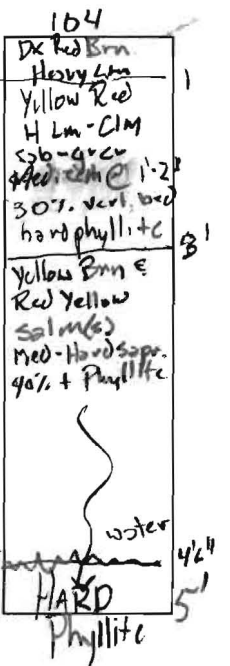 104
Dk Red Brn
Heavy Lm
1
Yellow Red
H Lm - Clm
sab-gr
@ 1'-2'
30% vert. bed
hard phyllite
3'
Yellow Brn &
Red Yellow
salm(s)
med-Hard sapr.
40% + Phyllite
water
4'6"
HARD
5'
Phyllite